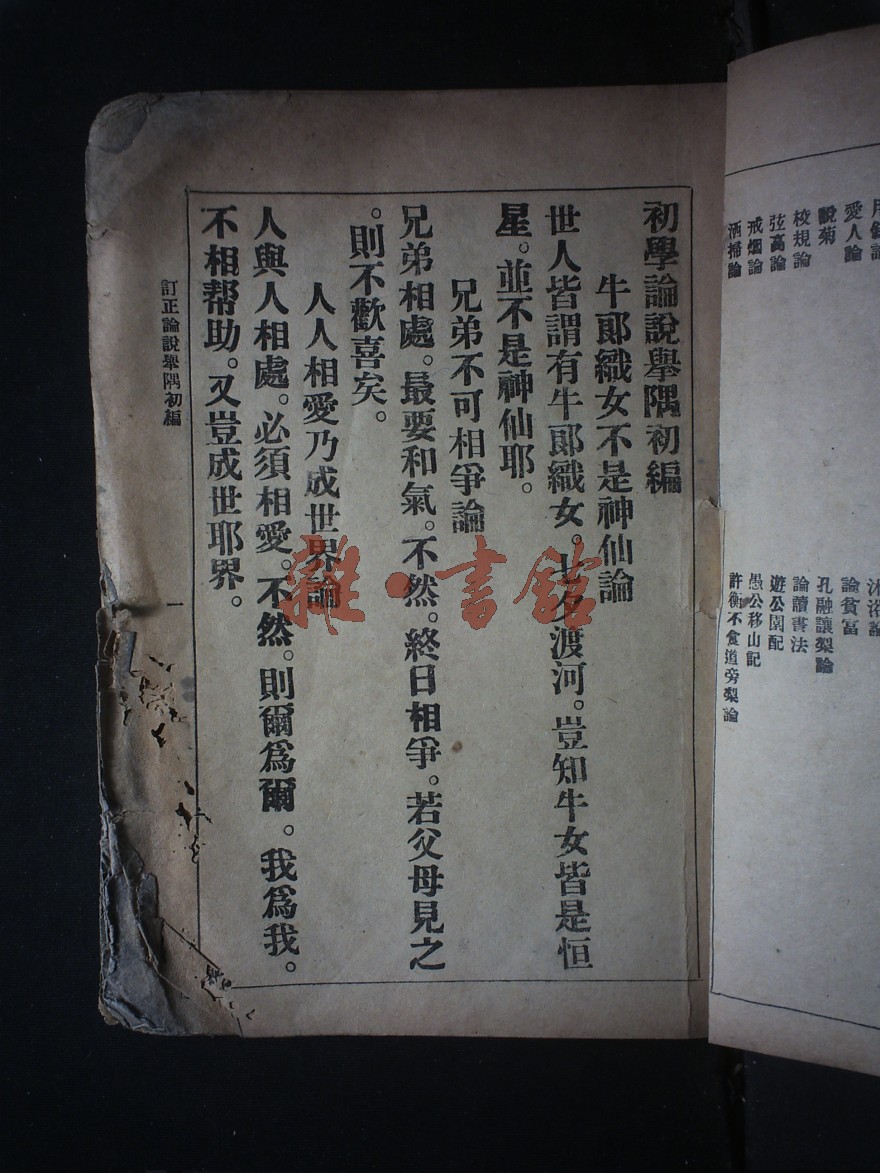 洒掃論
戒烟論
弦高論
校規論
說菊
愛人論
許衡不食道旁梨論
愚公移山記
遊公園配
論讀書法
孔融讓梨論
論貧富
沐浴論
初學論說舉隅初編
牛郞織女不是神仙論
世人皆謂有牛郞織女。七夕渡河。豈知牛女皆是恒
星。並不是神仙耶。
兄弟不可相爭論
兄弟相處。最要和氣。不然。終日相爭。若父母見之
。則不歡喜矣。
人人相愛乃成世界論
人與人相處。必須相愛。不然。則爾爲爾。我爲我。
不相幫助。又豈成世耶界。
訂正論說舉隅初編
一
雜·書館